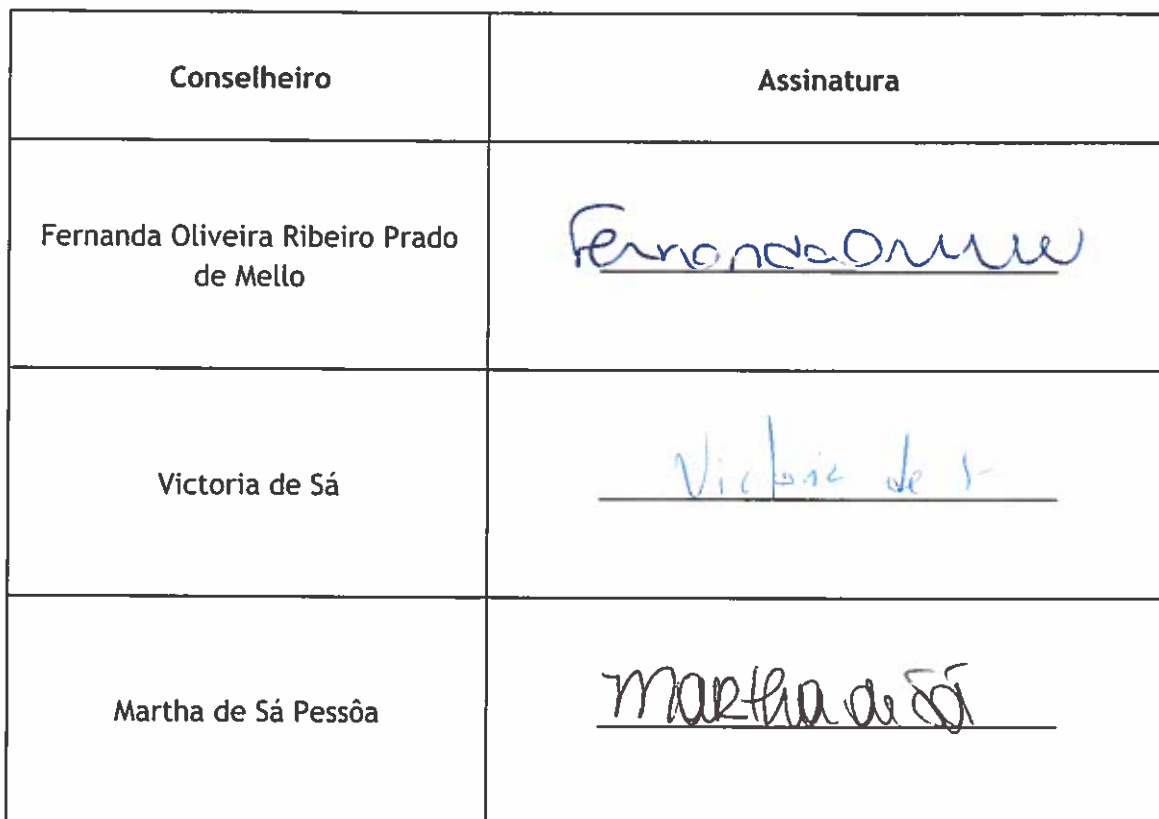 Conselheiro
Assinatura
Fernanda Oliveira Ribeiro Prado
de Mello
Fernanda
Victoria de Sá
Victoria de
Martha de Sá Pessôa
Martha de Sá